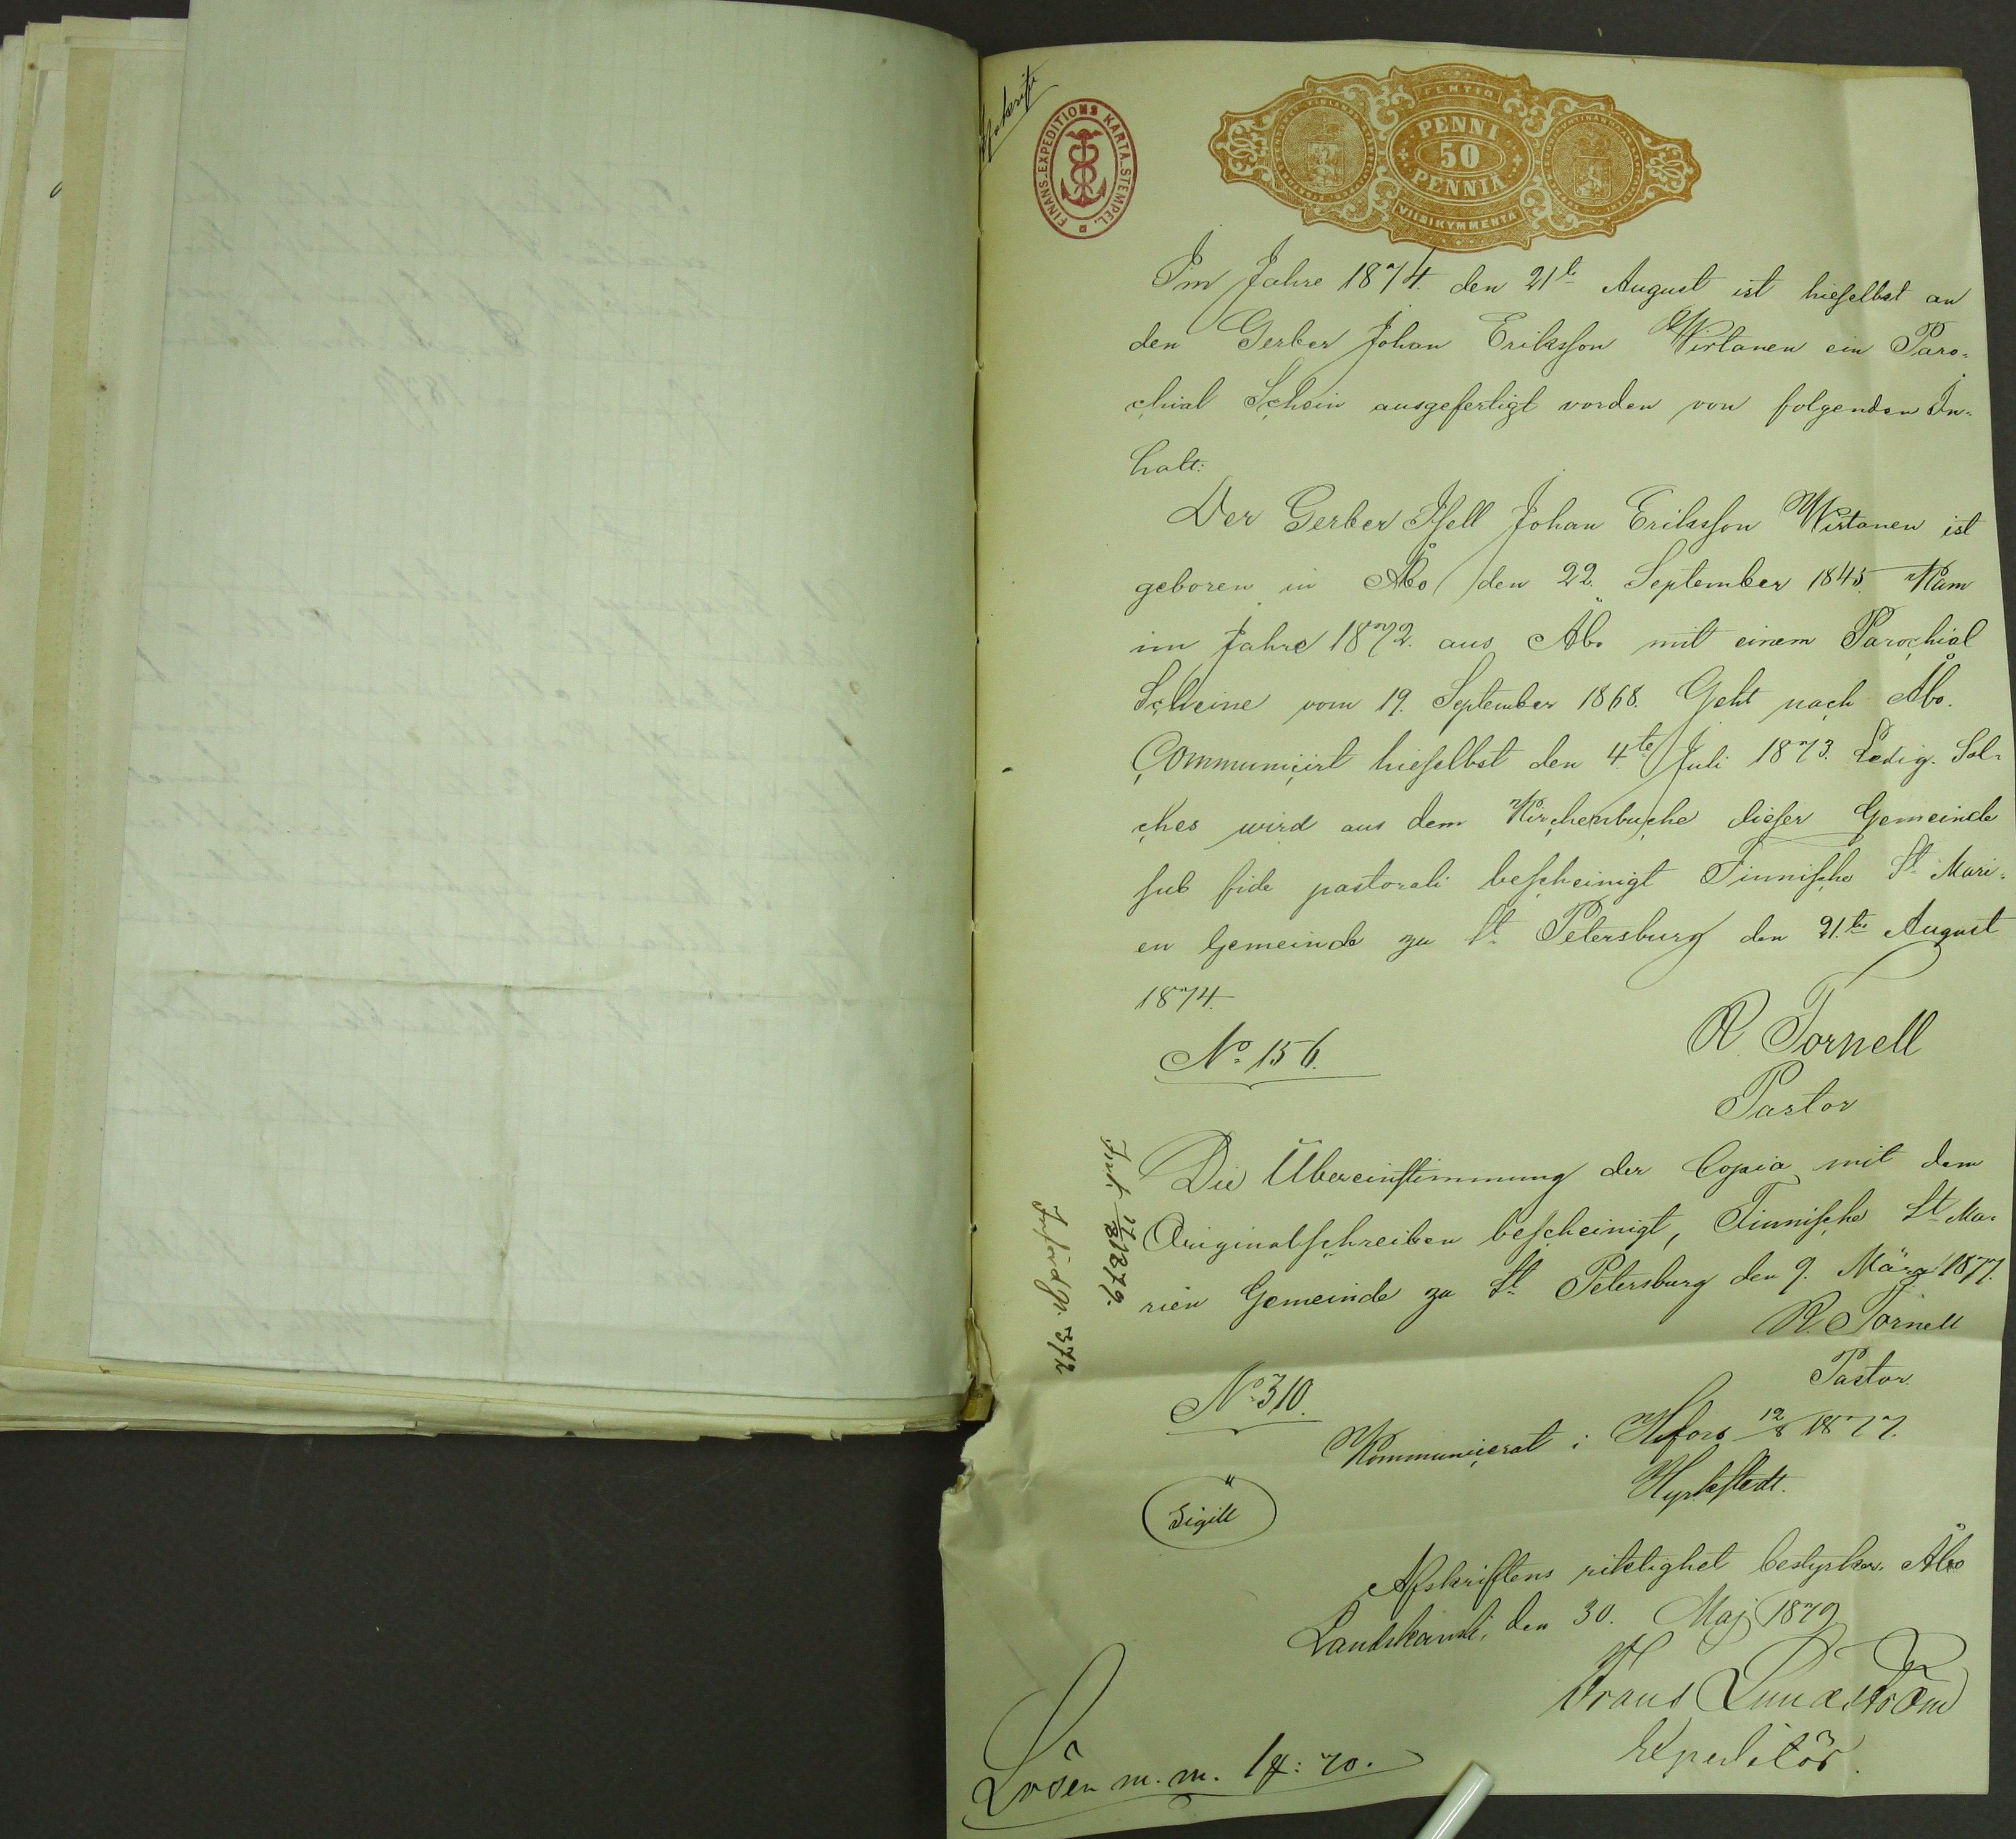 Afskrift
FINANS-EXPEDITIONS KARTA-STEMPEL.
FEMTIO
PENNI
50
PENNIÄ
VIISIKYMMENTÄ
Im Jahre 1874. den 21te August ist hieselbst an
den Gerber Johan Eriksson Wirtanen ein Paro-
chial Schein ausgefertigt vorden von folgenden In-
halt:
Der Gerber Gsell Johan Eriksson Wirtanen ist
geboren in Åbo den 22. September 1845. Kam
im Jahre 1872. aus Åbo mit einem Parochial
Scheine vom 19. September 1868. Geht nach Åbo.
Communicirt hieselbst den 4te Juli 1873. Ledig. Sol-
ches wird aus dem Kirchenbuche dieser Gemeinde
sub fide pastorali bescheinigt Finnische St Mari-
en Gemeinde zu St Petersburg den 21.te August
1874.
No 156.
R. Tornell
Pastor
Die Übereinstimmung der Copia mit dem
Originalschreiben bescheinigt, Finnische St Ma-
rien Gemeinde zu St Petersburg den 9. März 1877.
R. Tornell
Pastor.
No 310.
Kommunicerat i Hfors 12/8 1877.
Hyrkstedt.
Sigill
Afskriftens riktighet bestyrker. Åbo
Landskansli, den 30. Maj 1879
Frans Lundström
Expeditör.
Lösen m. m. 1 : 70.
1879.
372